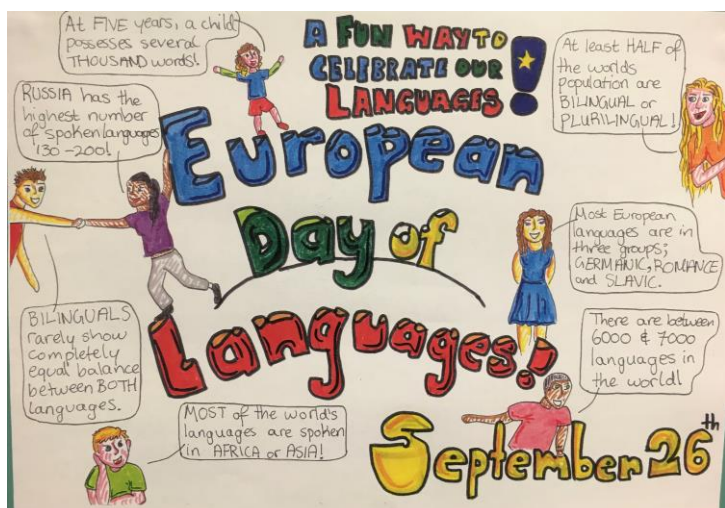 At FIVE years, a child
possesses several
THOUSAND words!
A FUN WAY TO
CELEBRATE OUR
LANGUAGES!
At least HALF of
the worlds
population are
BILINGUAL or
PLURILINGUAL!
RUSSIA has the
highest number
of spoken languages
130-200!
European
Day of
Languages!
Most European
languages are in
three groups;
GERMANIC, ROMANCE
and SLAVIC.
BILINGUALS
rarely show
completely
equal balance
between BOTH
languages.
There are between
6000 & 7000
languages in
the world!
MOST of the world's
languages are spoken
in AFRICA or ASIA!
September 26th